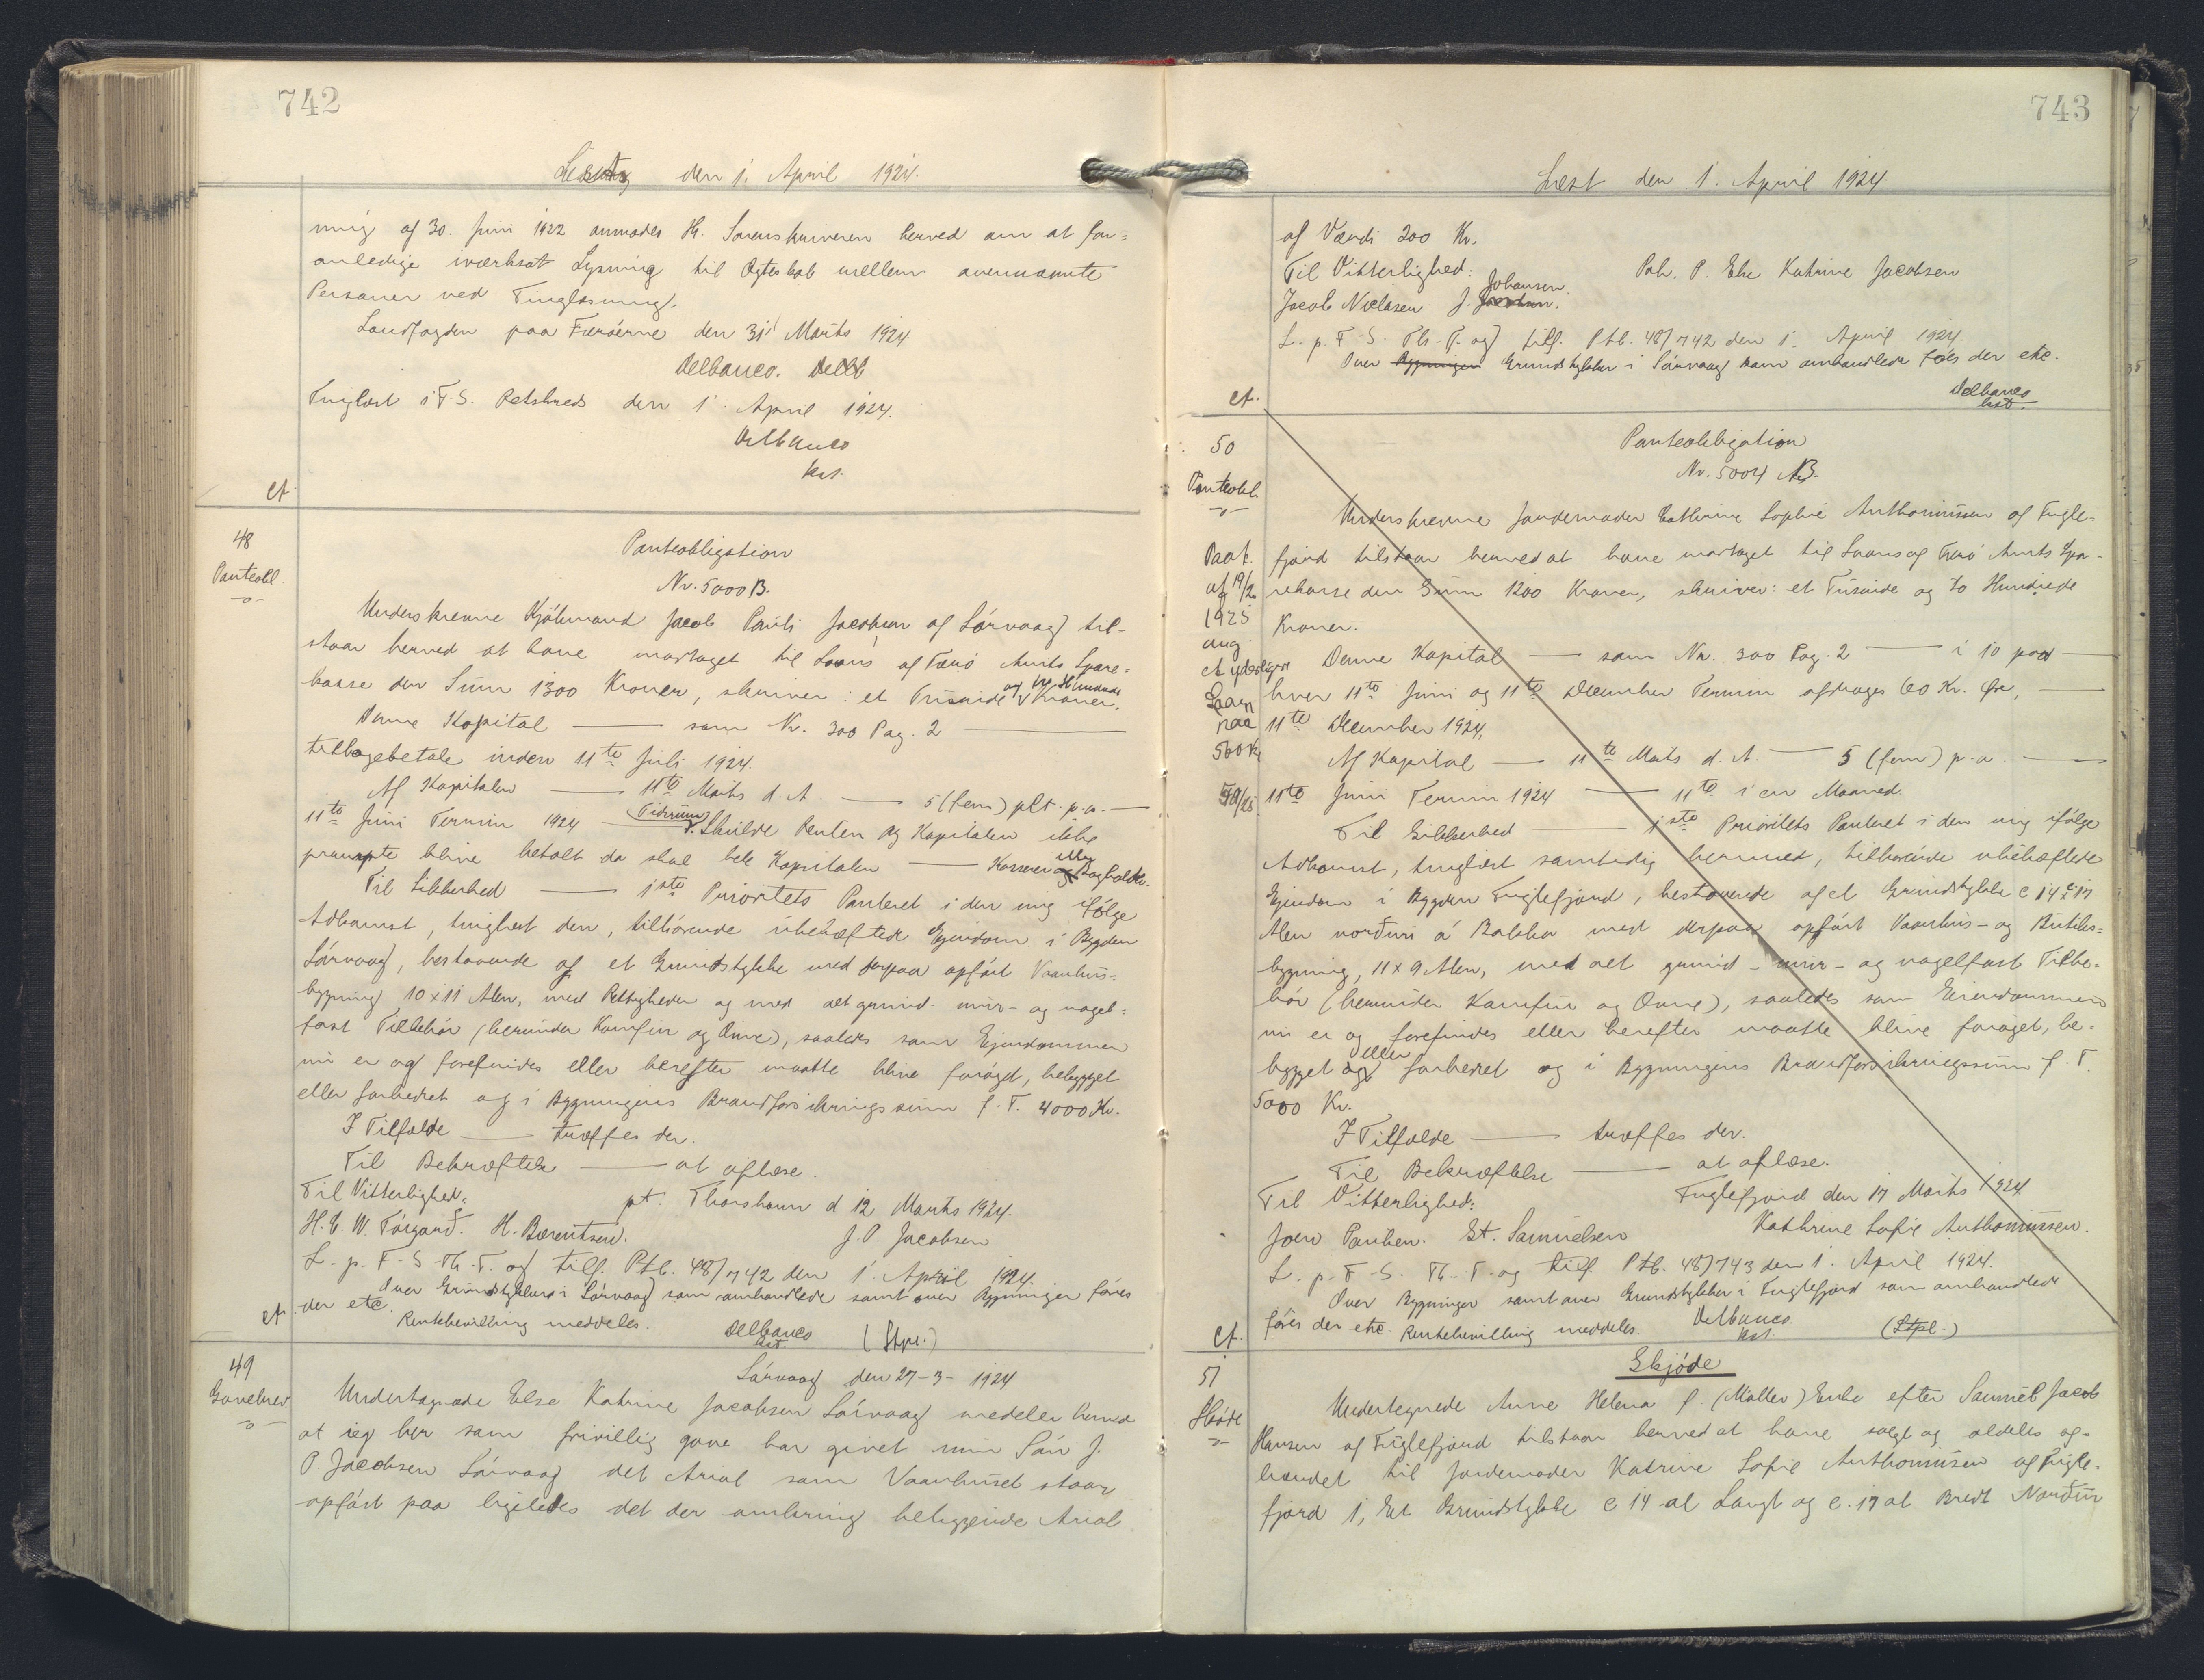 742
Læst den 1. April 1924.
ning af 30. Juni 1922 anmodes Hr. Sorenskriveren herved om at for=
anledige iværksat Lysning til Ægteskab mellem ovennævnte
Personer ved Tinglæsning.
Landfogden paa Færøerne den 31 Marts 1924.
Delbanco.
Tinglæst i F. S. Retskreds den 1. April 1924.
Delbanco
kst.
ct.
48
Panteobl.
Panteobligation
Nr. 5000 B.
Underskrevne Kjøbmand Jacob Pauli Jacobsen af Sórvaag til-
staar herved at have modtaget til Laans af Færø Amts Spare-
kasse den Sum 1300 Kroner, skriver: et Tusinde og tre Hundrede Kroner.
Denne Kapital — som Nr. 300 Pag. 2 —
tilbagebetale inden 11te Juli 1924.
Af Kapitalen — 11te Marts d. A. — 5 (fem) pCt. p. a. —
11te Juni Termin 1924 — Skulde Renten og Kapitalen ikke
prompte blive betalt da skal hele Kapitalen — Kasserer eller Bogholder.
Til Sikkerhed — 1ste Prioritets Panteret i den mig ifølge
Adkomst, tinglæst den, tilhørende ubehæftede Ejendom i Bygden
Sórvaag, bestaaende af et Grundstykke med derpaa opført Vaanhus-
bygning 10 x 11 Alen, med Rettigheder og med alt grund- mur- og nagel-
fast Tilbehør (herunder Komfur og Ovne), saaledes som Ejendommen
nu er og forefindes eller herefter maatte blive forøget, bebygget
eller forbedret og i Bygningens Brandforsikringssum f. T. 4000 Kr.
I Tilfælde — træffes der.
Til Bekræftelse — at aflæse.
Til Vitterlighed: pt. Thorshavn d 12 Marts 1924.
H. C. W. Tórgarð. H. Berentsen. J. P. Jacobsen
L. p. F-S-Th-T. og tilf. Ptb. 48/742 den 1. April 1924.
Over Grundstykket i Sórvaag som omhandlede samt over Bygninger føres
der etc. Rentebevilling meddeles. Delbanco kst. (Stpl.)
ct.
49
Gavebrev
Sórvaag den 27-3-1924
Undertegnede Else Katrine Jacobsen Sórvaag meddeler herved
at jeg her som frivillig gave har givet min Søn J.
P. Jacobsen Sórvaag det Arial som Vaanhuset staar
opført paa ligeledes det der omkring beliggende Arial
743
Læst den 1. April 1924.
af Værdi 200 Kr.
Til Vitterlighed: P. Else Katrine Jacobsen
Jacob Nielasen J. Johansen.
L. p. F-S. Th-T. og tilf. Ptb. 48/742 den 1. April 1924.
Over Bygningen Grundstykker i Sórvaag som omhandlede føres der etc.
Delbanco
kst.
ct.
50
Panteobl.
Panteobligation
Nr. 5004 B.
Underskrevne Jordemoder Cathrine Sophie Anthoniussen af Fugle-
fjord tilstaar herved at have modtaget til Laans af Færø Amts Spa-
rekasse den Sum 1200 Kroner, skriver: et Tusinde og to Hundrede
Kroner.
Paat.
af 19/2
1925
ang.
et yderligere
Laan
paa
500 Kr
Denne Kapital — som Nr. 300 Pag. 2 — i 10 paa —
hver 11te Juni og 11te December Termin afdrages 60 Kr. Øre, —
11te December 1924.
Af Kapital — 11te Marts d. A. — 5 (fem) p. a. —
11te Juni Termin 1924 — 11te i en Maaned
Til Sikkerhed — 1ste Prioritets Panteret i den mig ifølge
Adkomst, tinglæst samtidig hermed, tilhørende ubehæftede
Ejendom i Bygden Fuglefjord, bestaaende af et Grundstykke c 14 x 17
Alen norðuri á Bakka med derpaa opført Vaanhus- og Butiks-
bygning, 11 x 9 Alen, med alt grund- mur- og nagelfast Tilbe-
hør (herunder Komfur og Ovne), saaledes som Ejendommen
nu er og forefindes eller herefter maatte blive forøget, be-
bygget og eller forbedret og i Bygningens Brandforsikringssum f. T.
5000 Kr.
I Tilfælde — træffes der.
Til Bekræftelse — at aflæse.
Til Vitterlighed: Fuglefjord den 17 Marts 1924
Joen Poulsen. St. Samuelsen Kathrine Sofie Anthoniussen.
L. p. F-S. Th-T. og tilf Ptb. 48/743 den 1. April 1924.
Over Bygninger samt over Grundstykker i Fuglefjord som omhandlede
føres der etc. Rentebevilling meddeles. Delbanco kst. (Stpl.)
ct.
51
Skøde
Skjøde
Undertegnede Anne Helena f. (Møller) Enke efter Samuel Jacob
Hansen af Fuglefjord tilstaar herved at have solgt og aldeles af-
hændet til Jordemoder Katrine Sofie Anthoniussen af Fugle-
fjord 1, Et Grundstykke c 14 al Langt og c. 17 al Bredt Norður